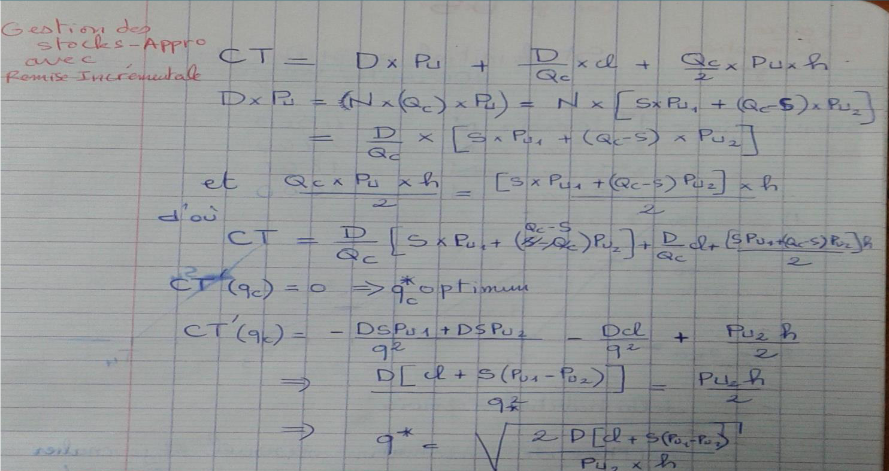 Gestion des
stocks-Appro
avec
Remise Incrémentale
CT = D x Pu + D/Qc x cl + Qc/2 x Pu x h
D x Pu = (N x (Qc) x Pu) = N x [S x Pu1 + (Qc-S) x Pu2]
= D/Qc x [S x Pu1 + (Qc-S) x Pu2]
et Qc x Pu x h / 2 = [S x Pu1 + (Qc-S) Pu2] x h / 2
d'où
CT = D/Qc [S x Pu1 + (Qc-S) Pu2] + D/Qc cl + [S Pu1 + (Qc-S) Pu2] h / 2
CT'(qc) = 0 => qc* optimum
CT'(qc) = - DSPu1 + DSPu2 / q² - Dcl / q² + Pu2 h / 2
=> D [cl + S(Pu1 - Pu2)] / q*² = Pu2 h / 2
=> q* = √ 2 D [cl + S(Pu1-Pu2)] / Pu2 x h